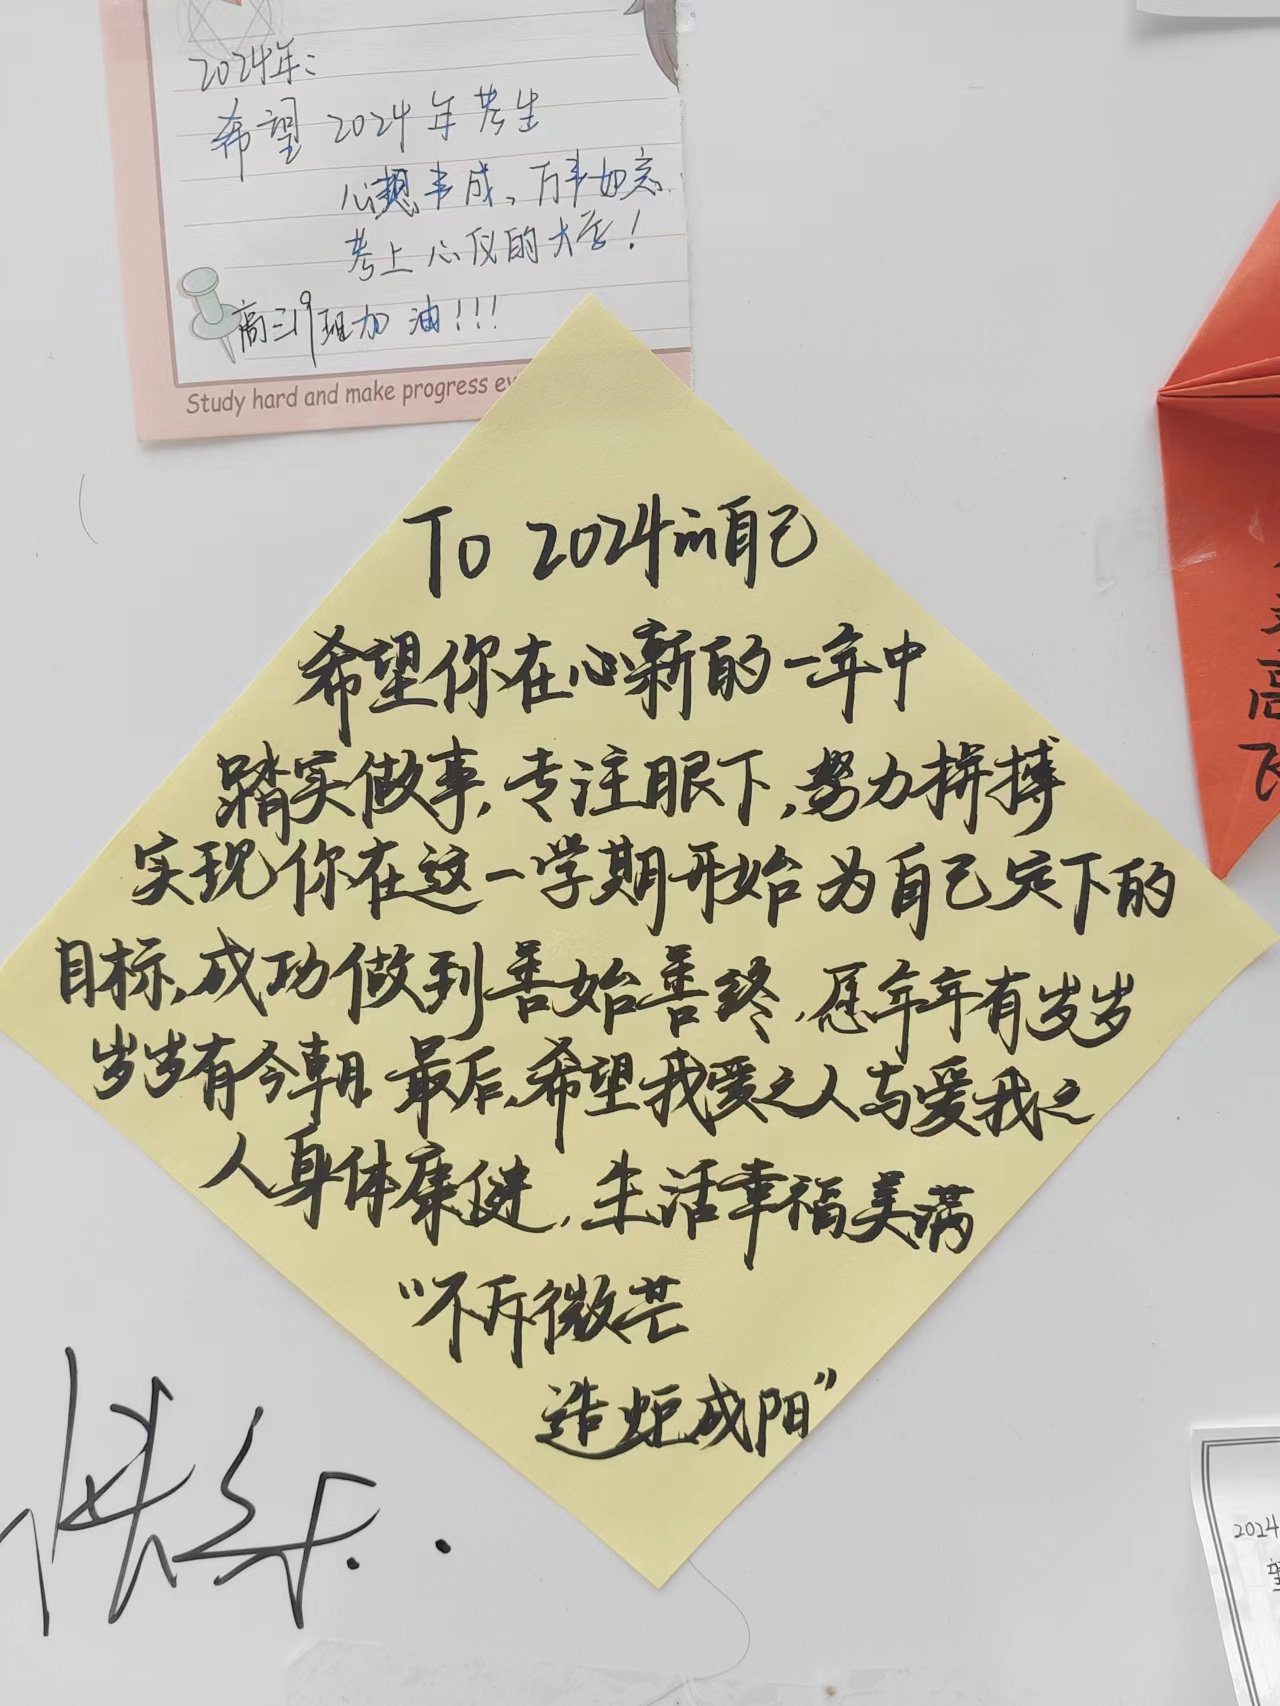 2024年：
希望 2024年考生
心想事成、万事如意
考上心仪的大学！
高三19班加油！！！
Study hard and make progress ev
To 2024的自己
希望你在心新的一年中
踏实做事，专注眼下，努力拼搏
实现你在这一学期开始为自己定下的
目标，成功做到善始善终，愿年年有岁岁
岁岁有今朝 最后，希望我爱之人与爱我之
人身体康健，生活幸福美满
“不斥微芒
造炬成阳”
快乐..
飞
2024